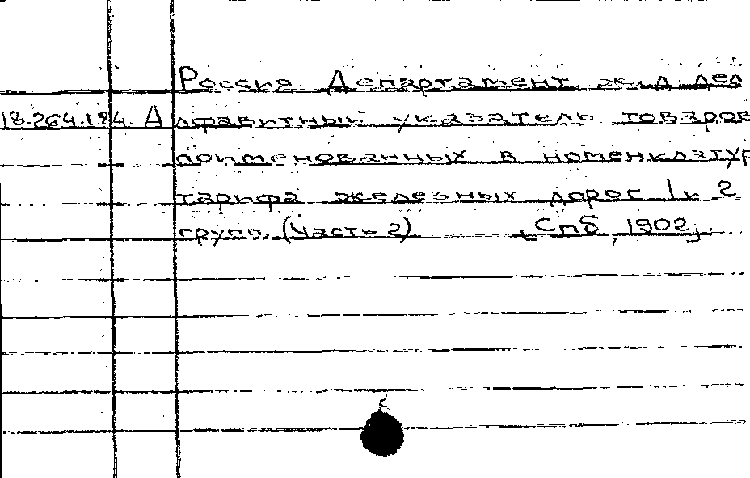 Россия Департамент ж.д. дел
18.264.184. Алфавитный указатель товаров
поименованных в номенклатур
тарифа железных дорог 1 и 2
групп. (Часть 2) [Спб, 1902].